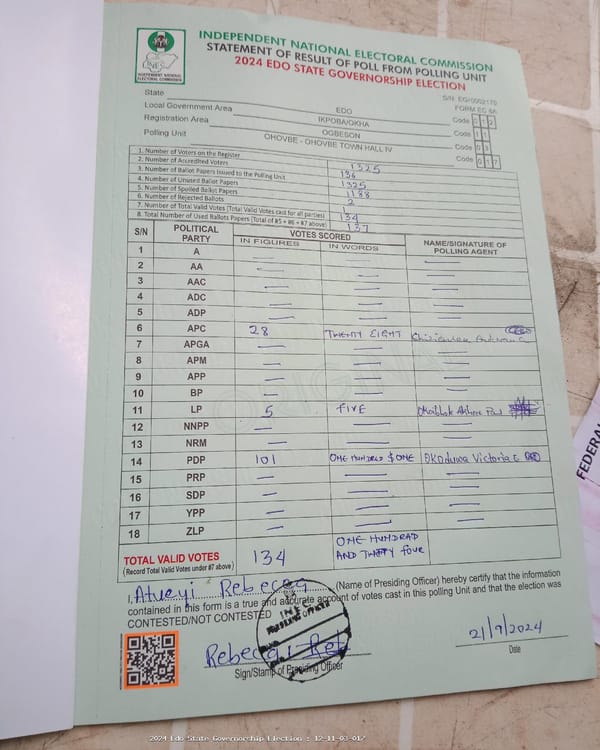 INDEPENDENT NATIONAL ELECTORAL COMMISSION
STATEMENT OF RESULT OF POLL FROM POLLING UNIT
2024 EDO STATE GOVERNORSHIP ELECTION
INDEPENDENT NATIONAL ELECTORAL COMMISSION
S/N: EG/0002176
FORM EC 8A
State EDO Code 012
Local Government Area IKPOBA/OKHA Code 11
Registration Area OGBESON Code 03
Polling Unit OHOVBE - OHOVBE TOWN HALL IV Code 017
1. Number of Voters on the Register 1325
2. Number of Accredited Voters 136
3. Number of Ballot Papers Issued to the Polling Unit 1325
4. Number of Unused Ballot Papers 1188
5. Number of Spoiled Ballot Papers 2
6. Number of Rejected Ballots 1
7. Number of Total Valid Votes (Total Valid Votes cast for all parties) 134
8. Total Number of Used Ballots Papers (Total of #5 + #6 + #7 above) 137
S/N POLITICAL PARTY VOTES SCORED NAME/SIGNATURE OF POLLING AGENT
IN FIGURES IN WORDS
1 A — — —
2 AA — — —
3 AAC — — —
4 ADC — — —
5 ADP — — —
6 APC 28 TWENTY EIGHT
7 APGA — — —
8 APM — — —
9 APP — — —
10 BP — — —
11 LP 5 FIVE
12 NNPP — — —
13 NRM — — —
14 PDP 101 ONE HUNDRED $ ONE Okoduwa Victoria E
15 PRP — — —
16 SDP — — —
17 YPP — — —
18 ZLP — — —
TOTAL VALID VOTES 134 ONE HUNDRAD
(Record Total Valid Votes under #7 above) AND FOUR
I, Atueyi Rebecca (Name of Presiding Officer) hereby certify that the information
contained in this form is a true and accurate account of votes cast in this polling Unit and that the election was
CONTESTED/NOT CONTESTED
INEC
21/9/2024
Sign/Stamp of Presiding Officer Date
FEDERAL
2024 Edo State Governorship Election : 12-11-03-017